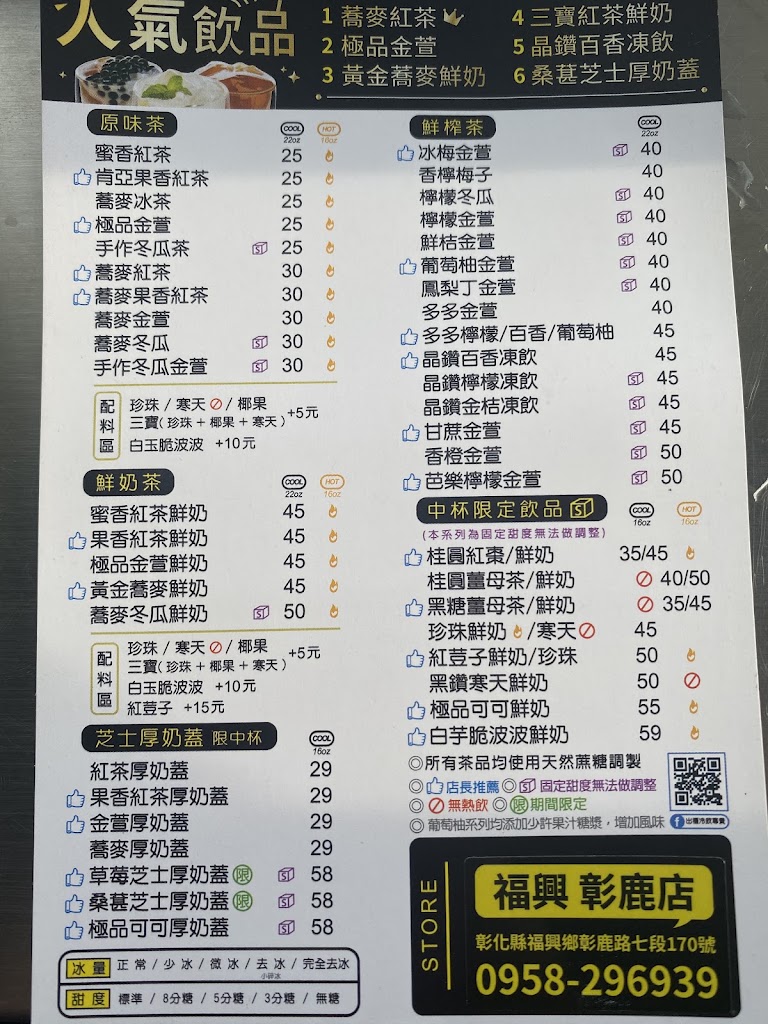 人氣飲品
1 蕎麥紅茶
2 極品金萱
3 黃金蕎麥鮮奶
4 三寶紅茶鮮奶
5 晶鑽百香凍飲
6 桑葚芝士厚奶蓋
原味茶 COOL 22oz HOT 16oz
蜜香紅茶 25
肯亞果香紅茶 25
蕎麥冰茶 25
極品金萱 25
手作冬瓜茶 ST 25
蕎麥紅茶 30
蕎麥果香紅茶 30
蕎麥金萱 30
蕎麥冬瓜 ST 30
手作冬瓜金萱 ST 30
配料區
珍珠 / 寒天 / 椰果
三寶(珍珠 + 椰果 + 寒天) +5元
白玉脆波波 +10元
鮮奶茶 COOL 22oz HOT 16oz
蜜香紅茶鮮奶 45
果香紅茶鮮奶 45
極品金萱鮮奶 45
黃金蕎麥鮮奶 45
蕎麥冬瓜鮮奶 ST 50
配料區
珍珠 / 寒天 / 椰果
三寶(珍珠 + 椰果 + 寒天) +5元
白玉脆波波 +10元
紅荳子 +15元
芝士厚奶蓋 限中杯 COOL 16oz
紅茶厚奶蓋 29
果香紅茶厚奶蓋 29
金萱厚奶蓋 29
蕎麥厚奶蓋 29
草莓芝士厚奶蓋 限 ST 58
桑葚芝士厚奶蓋 限 ST 58
極品可可厚奶蓋 ST 58
冰量 正常 / 少冰 / 微冰 / 去冰 / 完全去冰
小碎冰
甜度 標準 / 8分糖 / 5分糖 / 3分糖 / 無糖
鮮榨茶 COOL 22oz
冰梅金萱 ST 40
香檸梅子 40
檸檬冬瓜 ST 40
檸檬金萱 ST 40
鮮桔金萱 ST 40
葡萄柚金萱 ST 40
鳳梨丁金萱 ST 40
多多金萱 40
多多檸檬/百香/葡萄柚 45
晶鑽百香凍飲 45
晶鑽檸檬凍飲 ST 45
晶鑽金桔凍飲 ST 45
甘蔗金萱 ST 45
香橙金萱 ST 50
芭樂檸檬金萱 ST 50
中杯限定飲品 ST COOL 16oz HOT 16oz
(本系列為固定甜度無法做調整)
桂圓紅棗/鮮奶 35/45
桂圓薑母茶/鮮奶 40/50
黑糖薑母茶/鮮奶 35/45
珍珠鮮奶 /寒天 45
紅荳子鮮奶/珍珠 50
黑鑽寒天鮮奶 50
極品可可鮮奶 55
白芋脆波波鮮奶 59
◎所有茶品均使用天然蔗糖調製
◎ 店長推薦 ◎ ST 固定甜度無法做調整
◎ 無熱飲 ◎ 限 期間限定
◎ 葡萄柚系列均添加少許果汁糖漿，增加風味
STORE
福興 彰鹿店
彰化縣福興鄉彰鹿路七段170號
0958-296939